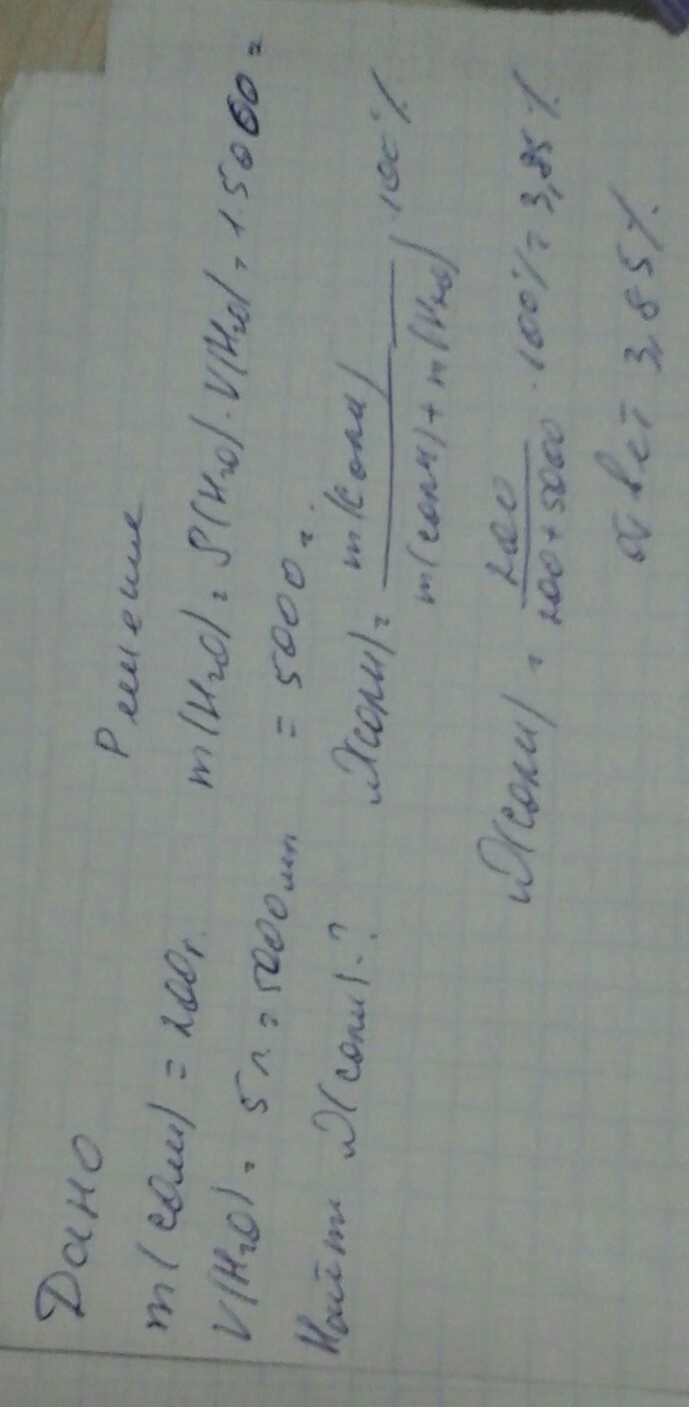 Дано
m(соли) = 200г.
V(H₂O) = 5л = 5000мл
Найти ω(соли)-?
Решение
m(H₂O) = ρ(H₂O)·V(H₂O) = 1·5000 =
= 5000г.
ω(соли) = m(соли) / m(соли) + m(H₂O) · 100%
ω(соли) = 200 / 200 + 5000 · 100% = 3,85%
ответ 3,85%.